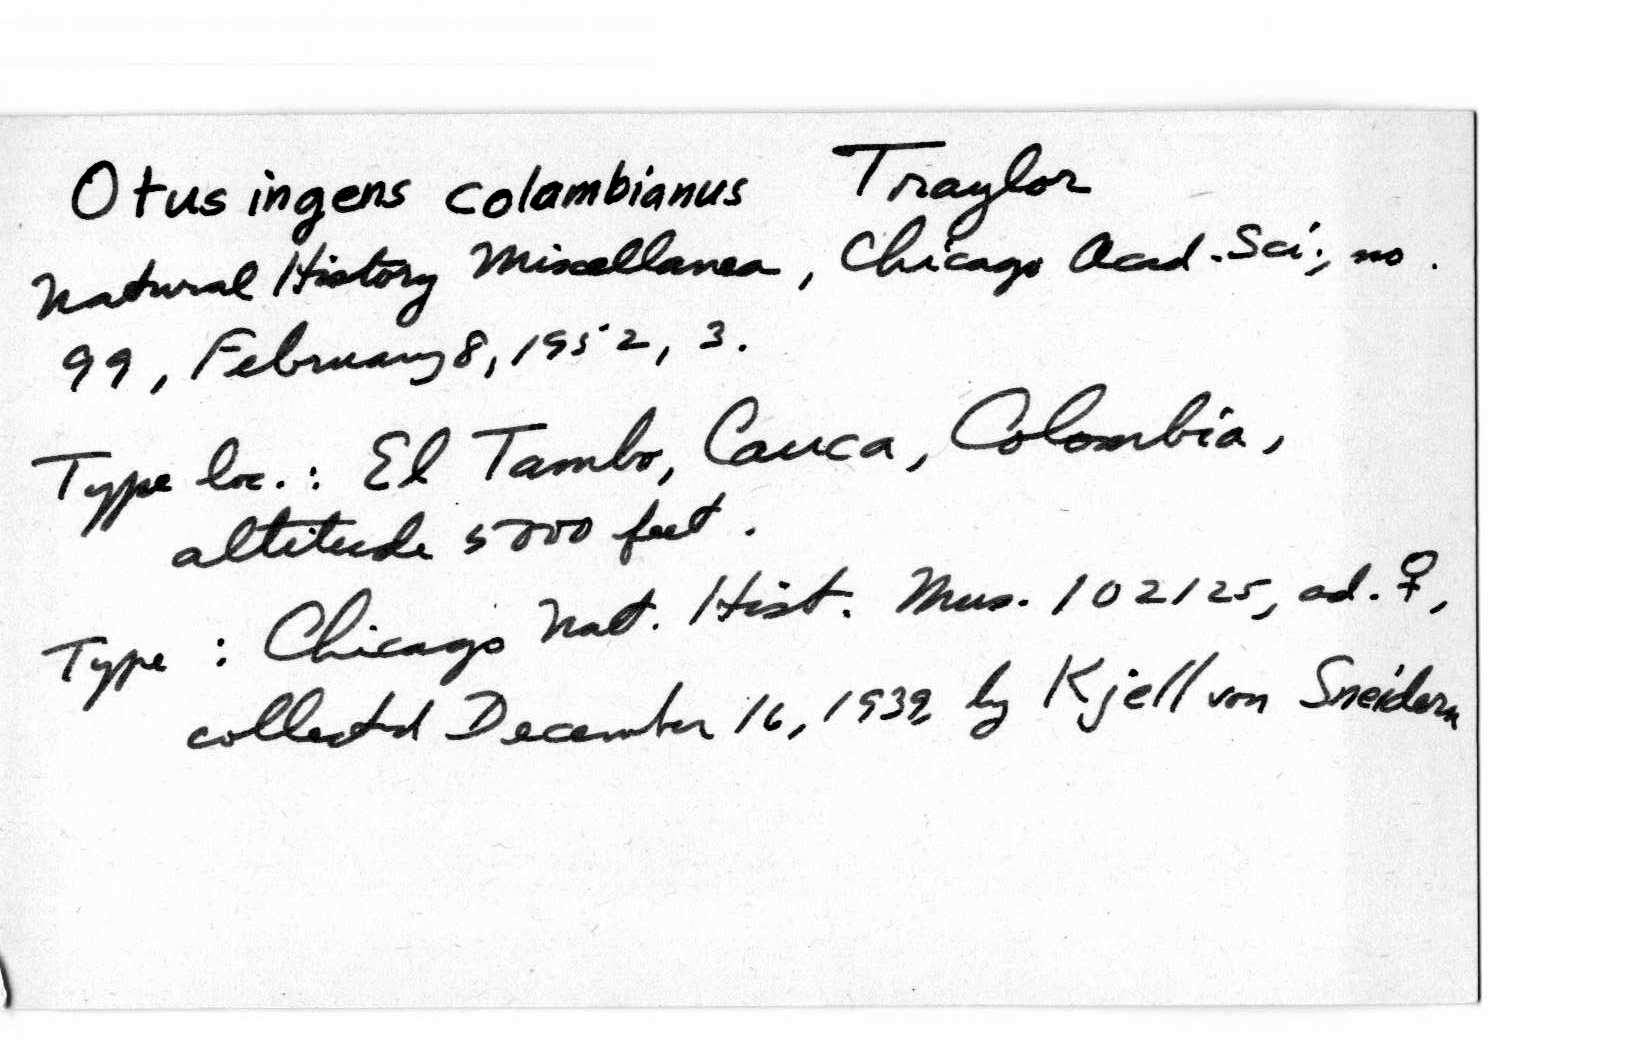 Otus ingens colombianus Traylor
Natural History Miscellanea, Chicago Acad. Sci., no.
99, February 8, 1952, 3.
Type loc.: El Tambo, Cauca, Colombia,
altitude 5700 feet.
Type : Chicago Nat. Hist. Mus. 102125, ad. ♀,
collected December 16, 1939, by Kjell von Sneidern